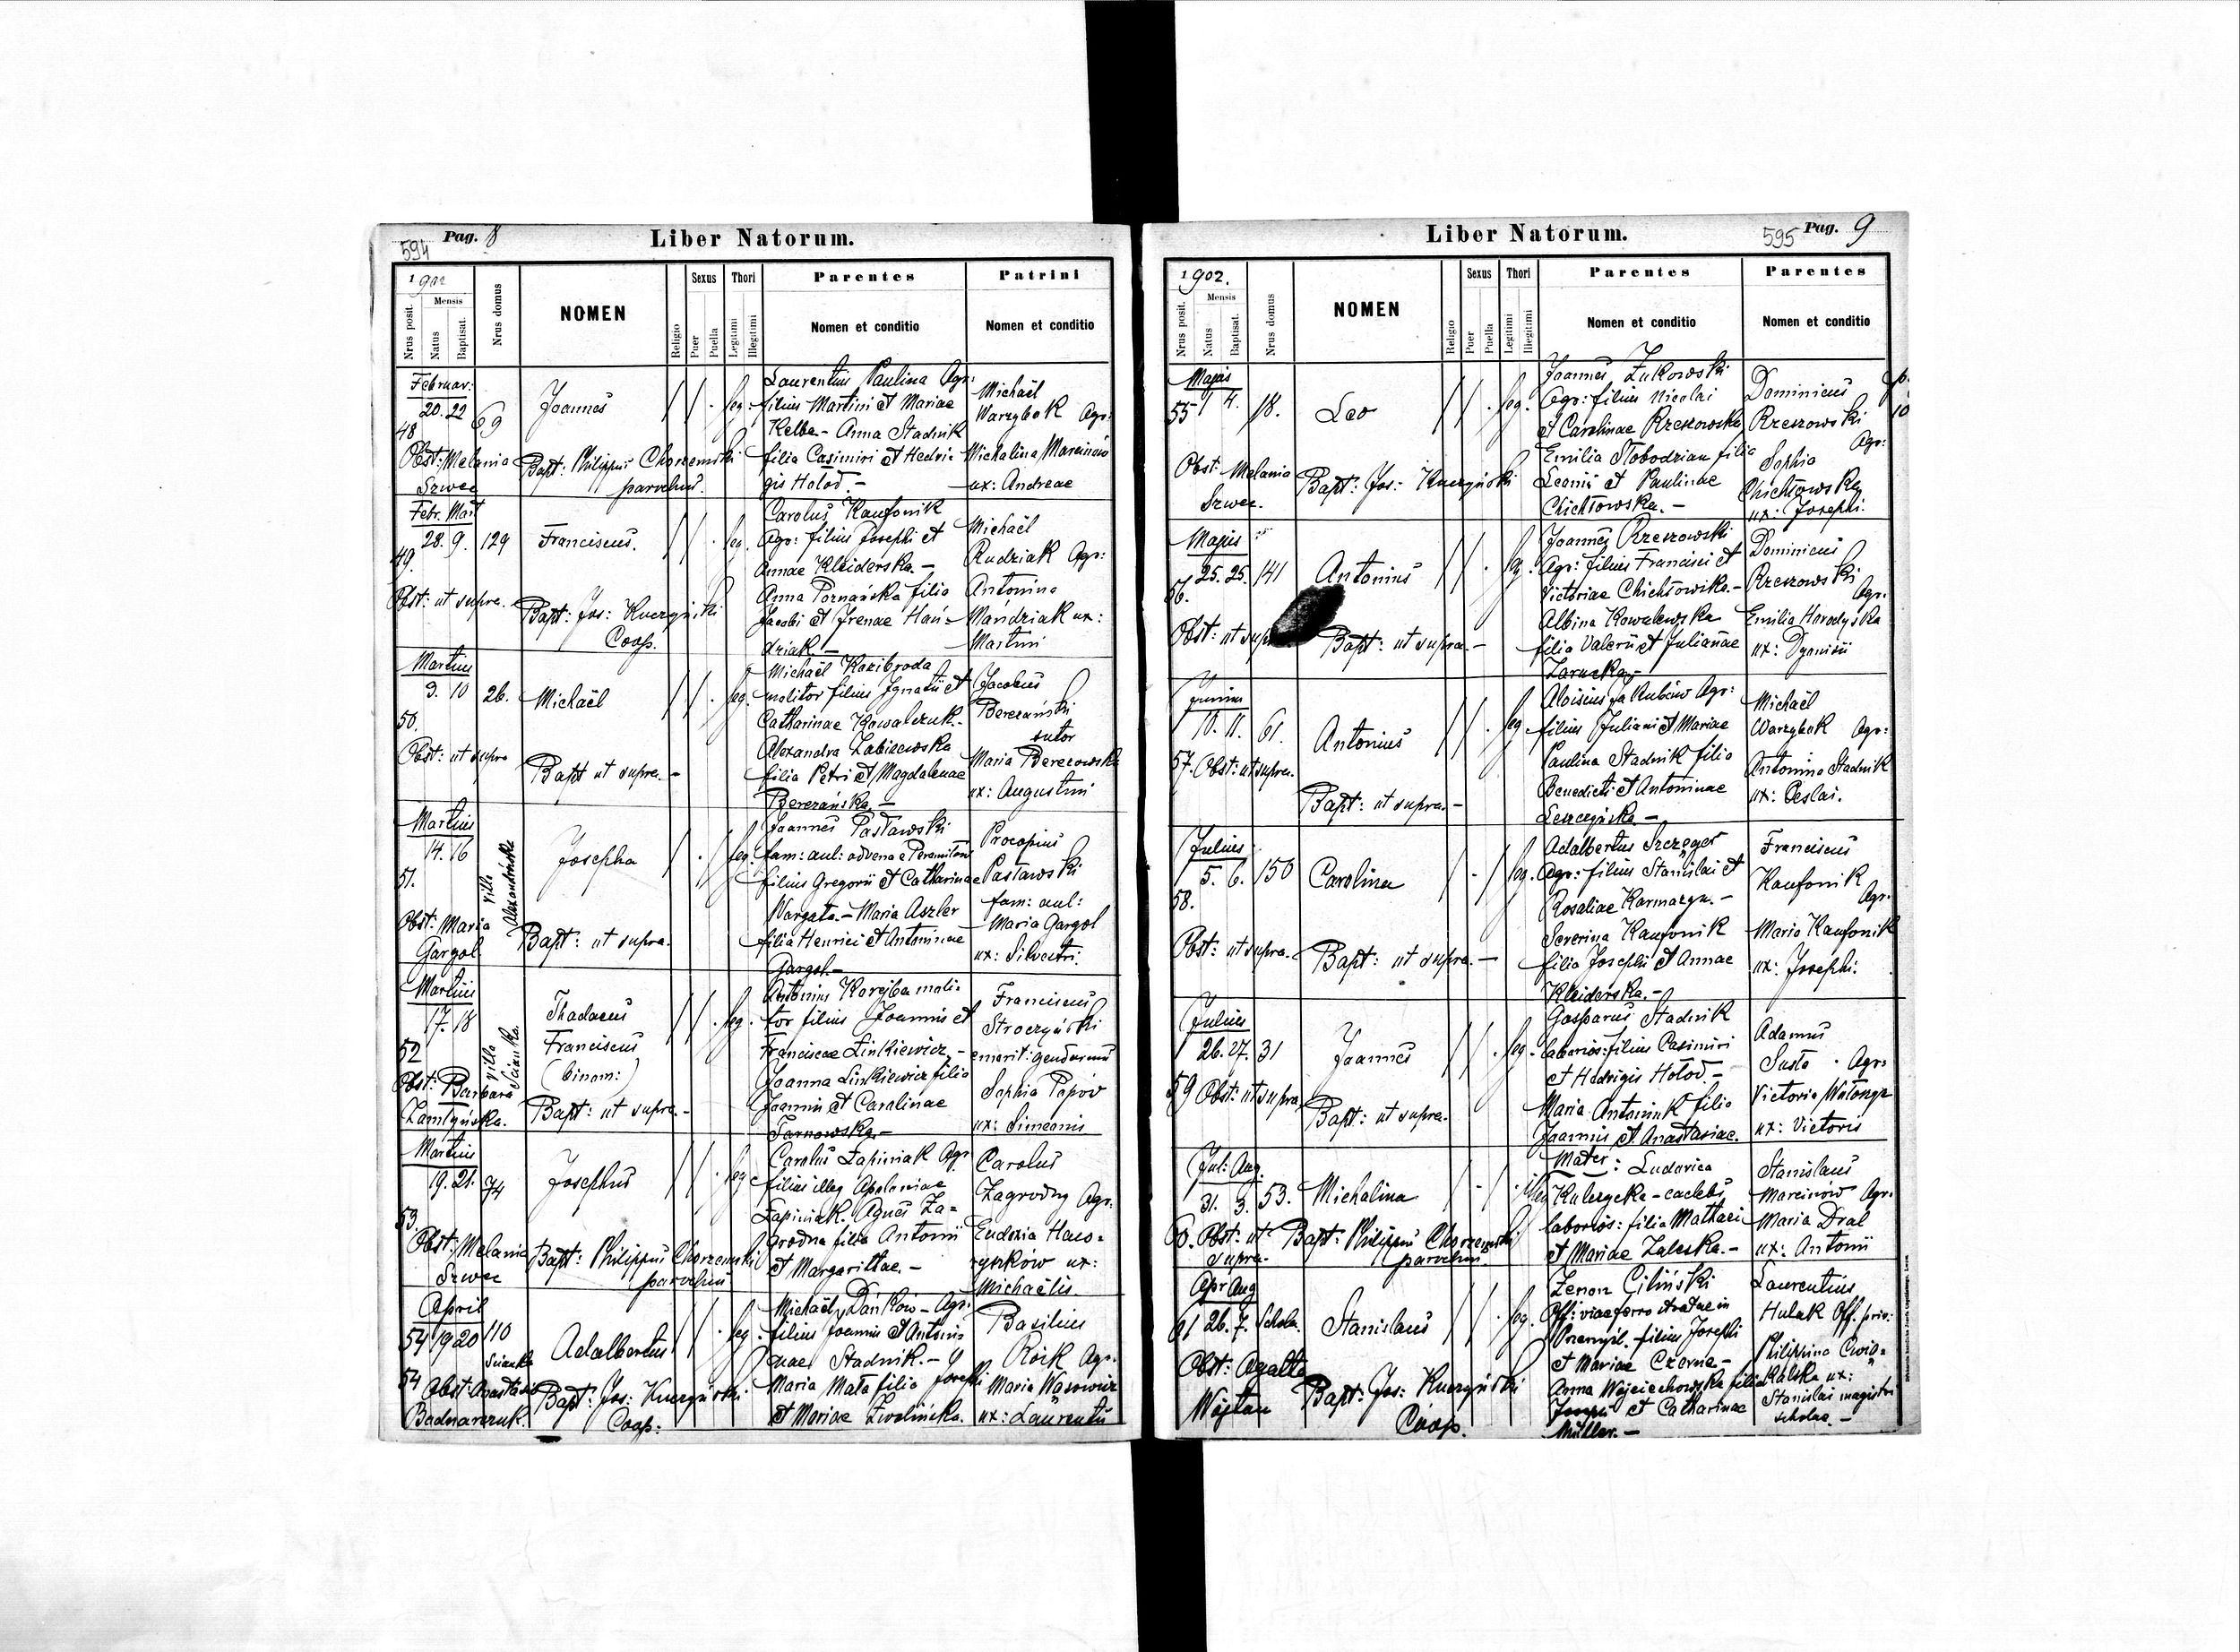 594 Pag. 8 Liber Natorum.
1902
Mensis
Nrus posit.
Natus
Baptisat.
Nrus domus
NOMEN
Religio
Sexus
Puer
Puella
Thori
Legitimi
Illegitimi
Parentes
Nomen et conditio
Patrini
Nomen et conditio
Februar:
20. 22
48
69
Joannes
leg.
Laurentius Paulina Agr:
filius Martini et Mariae
Kelba - Anna Stadnik
filia Casimiri et Hedvi-
gis Hołod. -
Michaël
Warzybok Agr:
Michalina Marcinów
ux: Andreae
Obst: Melania
Szwec
Bapt: Philippus Chorzemski
parochus.
Febr. Mart
28. 9.
49.
129
Franciscus.
leg.
Carolus Kaufonik
Agr: filius Josephi et
Annae Kleiderska. -
Anna Poznańska filia
Jacobi et Irenae Hań-
dziak. -
Michaël
Rudziak Agr:
Antonina
Mandziak ux:
Martini
Obst: ut supra.
Bapt: Jos: Kuczyński
Coop.
Martius
9. 10
50.
26.
Michaël
leg.
Michaël Kozibroda
molitor filius Ignatii et
Catharinae Kowalczuk. -
Alexandra Zabiczewska
filia Petri et Magdalenae
Berezańska. -
Jacobus
Berezański
sutor
Maria Berezowska
ux: Augustini
Obst: ut supra
Bapt ut supra. -
Martius
14. 16
51.
villa
Alexandrówka
Josepha
leg.
Joannes Pasławski
fam: aul: advena e Peremiłow
filius Gregorii et Catharinae
Wargata. - Maria Aszler
filia Henrici et Antoninae
Gargol. -
Procopius
Pasławski
fam: aul:
Maria Gargol
ux: Silvestri.
Obst: Maria
Gargol
Bapt: ut supra.
Martius
17. 18
52
villa
Ścianka
Thadaeus
Franciscus
(binom:)
leg.
Antonius Korejba moli-
tor filius Joannis et
Franciscae Linkiewicz. -
Joanna Linkiewicz filia
Joannis et Carolinae
Tarnowska. -
Franciscus
Stroczyński
emerit: gendarmus
Sophia Popów
ux: Simeonis
Obst: Barbara
Zamłyńska.
Bapt: ut supra. -
Martius
19. 21.
53.
74
Josephus
leg
Carolus Łapiniak Agr
filius illeg Apoloniae
Łapiniak. Agnes Za-
grodna filia Antonii
et Margarittae. -
Carolus
Zagrodny Agr.
Eudoxia Haw-
ryńków ux:
Michaëlis.
Obst: Melania
Szwec
Bapt: Philippus Chorzemski
parochus
April
54 19 20
110
Ścianka
Adalbertus
leg.
Michaël Dańków - Agr:
filius Joannis et Antoni-
nae Stadnik. -
Maria Mała filia Josephi
et Mariae Zwolińska.
Basilius
Rock Agr.
Maria Wąsowicz
ux: Laurentii
54 Obst: Anastasia
Badnarczuk.
Bapt: Jos: Kuczyński.
Coop:
Liber Natorum. 595 Pag. 9
1902.
Mensis
Nrus posit.
Natus
Baptisat.
Nrus domus
NOMEN
Religio
Sexus
Puer
Puella
Thori
Legitimi
Illegitimi
Parentes
Nomen et conditio
Parentes
Nomen et conditio
Majus
55 1 4.
18.
Leo
leg.
Joannes Żukowski
Agr: filius Nicolai
et Carolinae Rzeszowska
Emilia Słobodzian filia
Leonii et Paulinae
Chichłowska. -
Dominicus
Rzeszowski
Agr:
Sophia
Chichłowska
ux: Josephi.
10
Obst: Melania
Szwec.
Bapt: Jos: Kuczyński
Majus
25. 25.
56.
141
Antonius
leg.
Joannes Rzeszowski
Agr: filius Francisci et
Victoriae Chichłowska. -
Albina Kowalewska
filia Valerii et Julianae
Zarucka. -
Dominicus
Rzeszowski
Agr.
Emilia Horodyska
ux: Dyonisii
Obst: ut supra
Bapt: ut supra. -
Junius
10. 11.
61.
Antonius
leg
Aloisius Jakubów Agr:
filius Juliani et Mariae
Paulina Stadnik filia
Benedicti et Antoninae
Leszczyńska. -
Michaël
Warzybok Agr:
Antonina Stadnik
ux: Ceslai.
57. Obst: ut supra.
Bapt: ut supra. -
Julius
5. 6.
58.
150
Carolina
leg.
Adalbertus Szczęgeł
Agr: filius Stanislai et
Rosaliae Karmazyn. -
Severina Kaufonik
filia Josephi et Annae
Kleiderska. -
Franciscus
Kaufonik
Agr.
Maria Kaufonik
ux: Josephi.
Obst: ut supra.
Bapt: ut supra. -
Julius
26. 27.
31
Joannes
leg.
Gasparus Stadnik
laborios: filius Casimiri
et Hedvigis Hołod. -
Maria Antoniuk filia
Joannis et Anastasiae.
Adamus
Susło Agr:
Victoria Wołoszyn
ux: Victoris
59 Obst: ut supra
Bapt: ut supra.
Jul: Aug.
31. 3.
53.
Michalina
illeg
Mater: Ludovica
Kulczycka - caelebs
laborios: filia Mathaei
et Mariae Zaleska. -
Stanislaus
Marcinów Agr.
Maria Dral
ux: Antonii
60. Obst: ut
supra.
Bapt: Philippus Chorzemski
parochus.
Apr Aug
61 26. 7.
Schola.
Stanislaus
leg.
Zenon Ciliński
Off: viae ferro stratae in
Przemyśl. filius Josephi
et Mariae Czerna -
Anna Wojciechowska filia
Josephi et Catharinae
Müller. -
Laurentius
Hulak Off. priv:
Philippina Cwio-
kalska ux:
Stanislai magistri
scholae. -
Obst: Agatta
Wojtan
Bapt: Jos: Kuczyński
Coop.